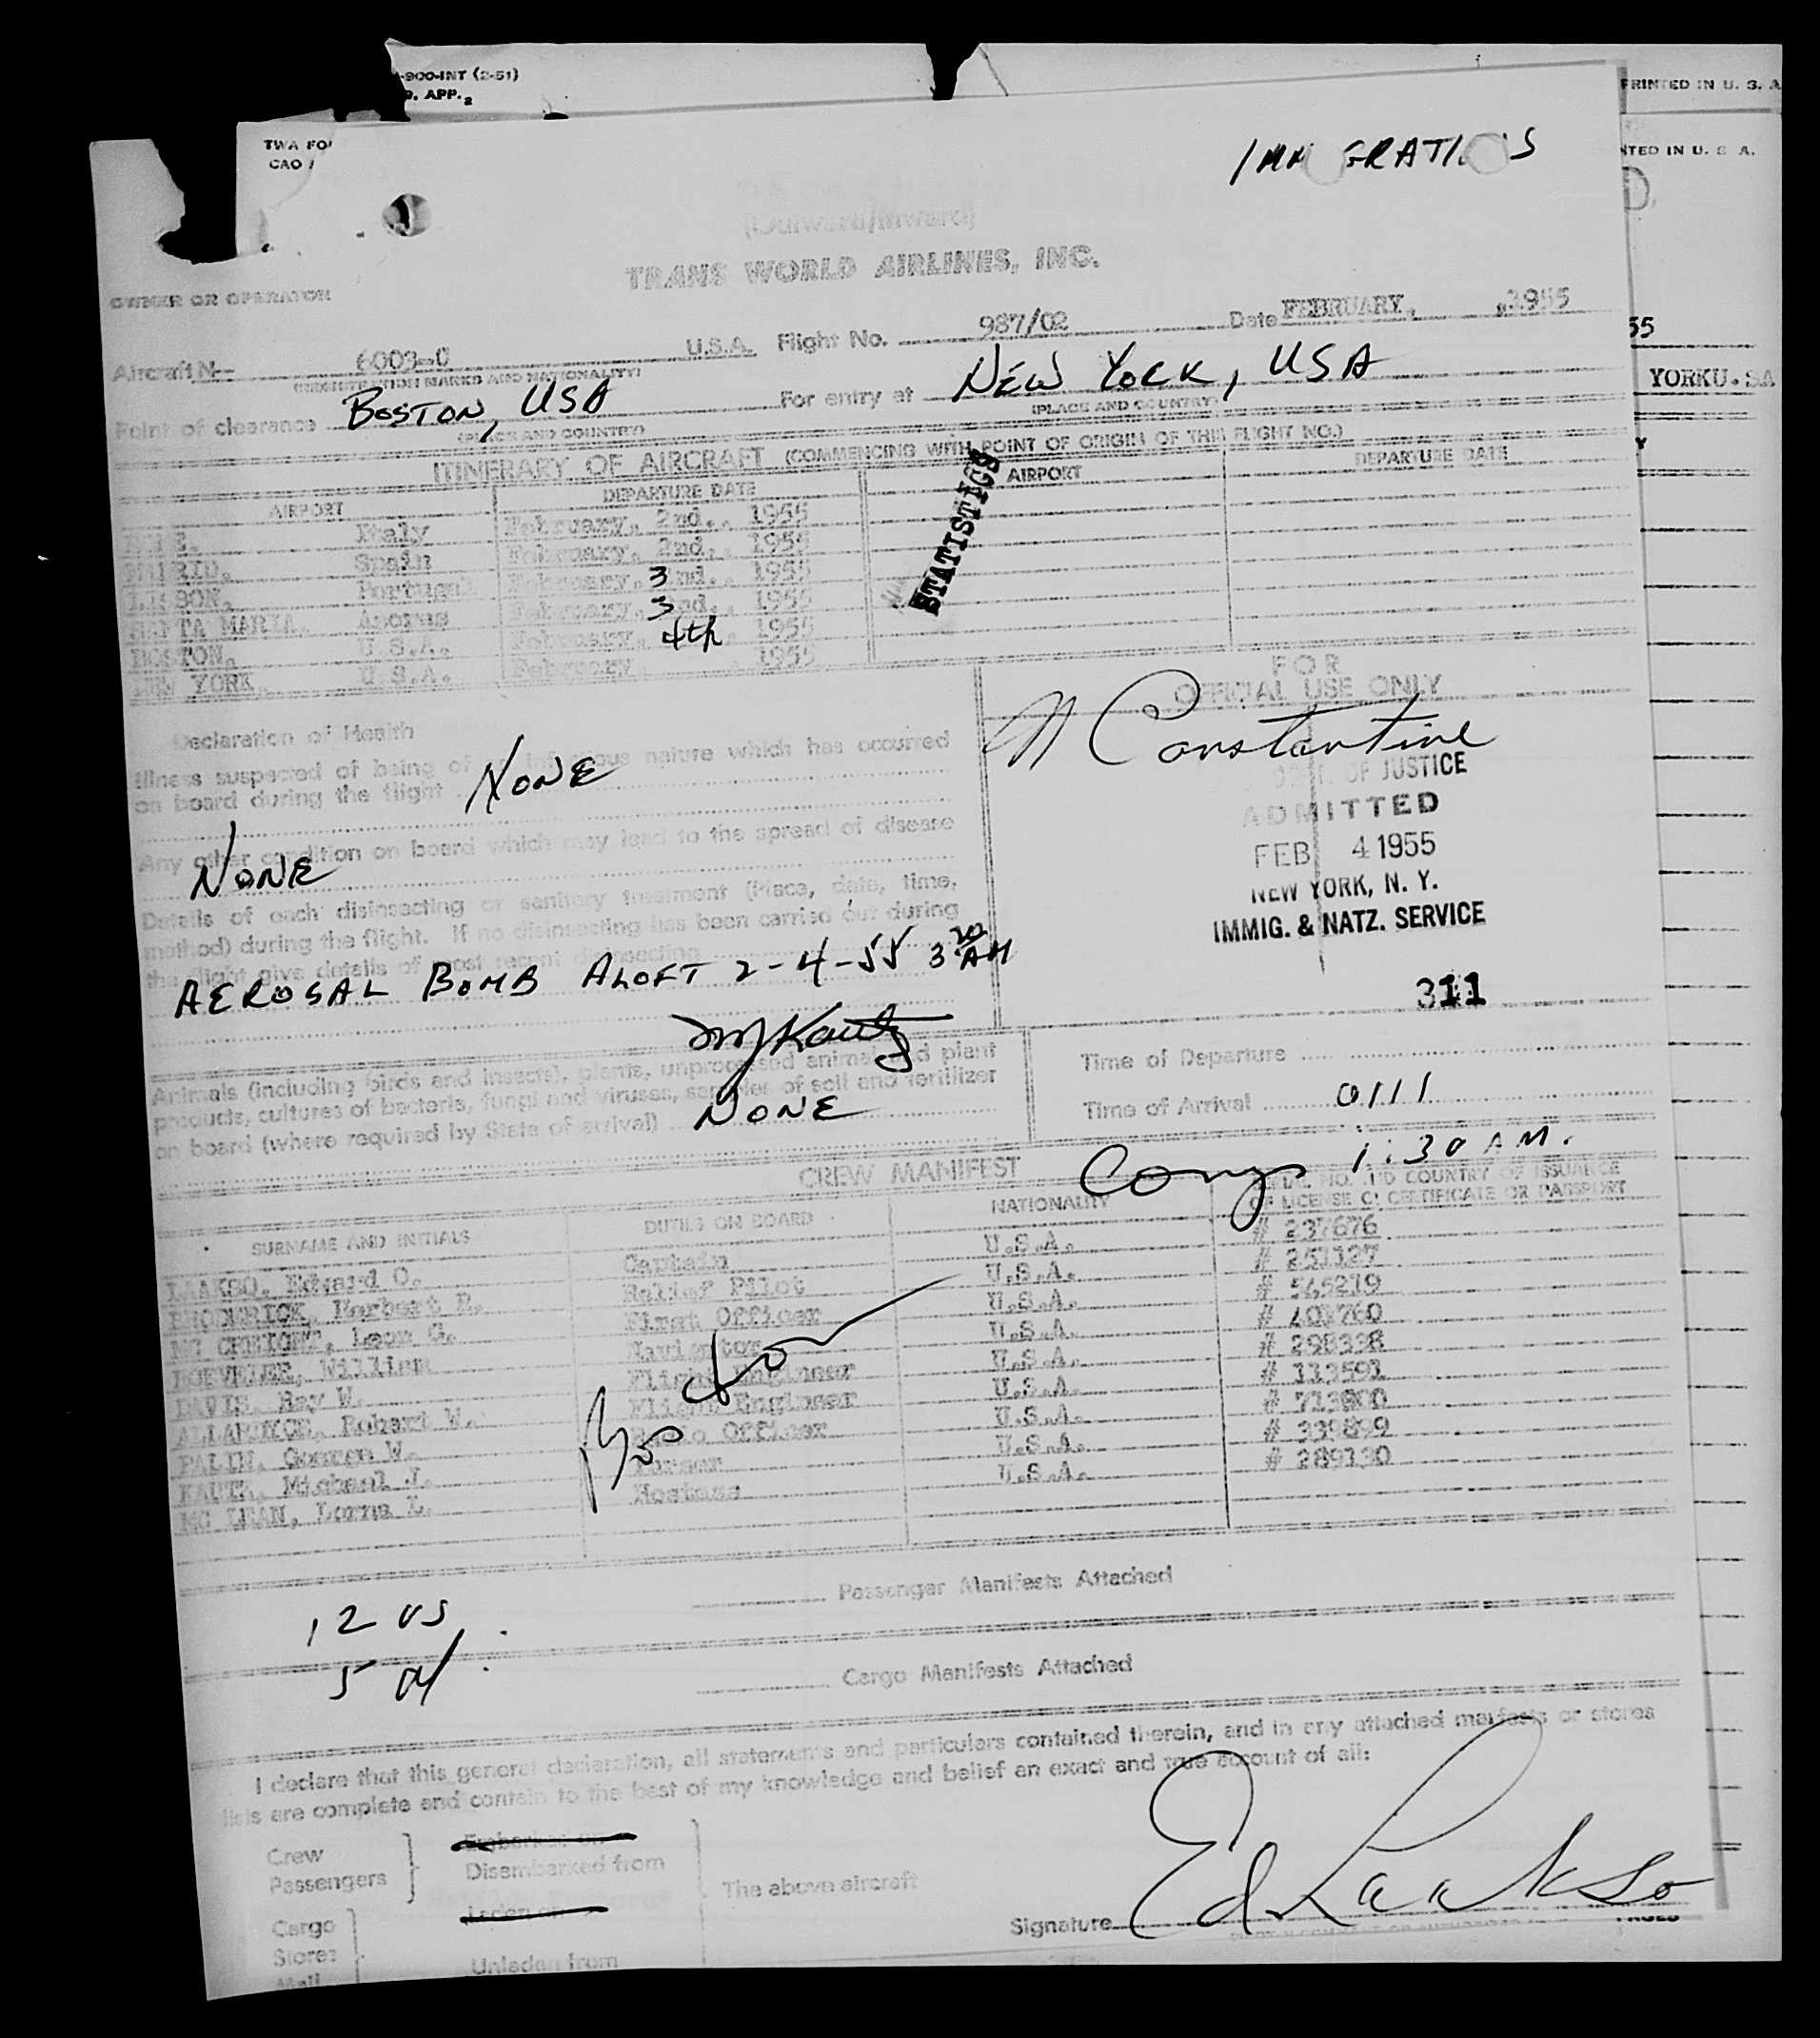 -900-INT (2-51)
D. APP. 2
PRINTED IN U. S. A
TWA FO
CAO
NTED IN U. S. A.
(Outward/Inward)
TRANS WORLD AIRLINES, INC.
OWNER OR OPERATOR
Aircraft N- 6003-C U.S.A. Flight No. 987/02 Date FEBRUARY, 1955
55
(REGISTRATION MARKS AND NATIONALITY)
Point of clearance BOSTON, USA For entry at NEW YORK, USA
YORKU.SA
(PLACE AND COUNTRY) (PLACE AND COUNTRY)
ITINERARY OF AIRCRAFT (COMMENCING WITH POINT OF ORIGIN OF THIS FLIGHT NO.)
AIRPORT DEPARTURE DATE AIRPORT DEPARTURE DATE
Italy February, 2nd., 1955
MADRID, Spain February, 2nd., 1955
LISBON, Portugal February, 3nd., 1955
SANTA MARIA, Azores February, 3nd., 1955
BOSTON, U.S.A. February, 4th, 1955
NEW YORK, U.S.A. February, 1955
STATISTICS
FOR
OFFICIAL USE ONLY
N Constantine
Declaration of Health
Illness suspected of being of infectious nature which has occurred
on board during the flight NONE
Any other condition on board which may lead to the spread of disease
NONE
Details of each disinsecting or sanitary treatment (Place, date, time,
method) during the flight. If no disinsecting has been carried out during
the flight give details of most recent disinsecting
AEROSAL BOMB ALOFT 2-4-55 3 20 AM
MJ Kautz
DEPT. OF JUSTICE
ADMITTED
FEB 4 1955
NEW YORK, N. Y.
IMMIG. & NATZ. SERVICE
311
Animals (including birds and insects), plants, unprocessed animal and plant
products, cultures of bacteria, fungi and viruses, samples of soil and fertilizer
on board (where required by State of arrival) NONE
Time of Departure
Time of Arrival 0111
1:30 AM.
CREW MANIFEST
SURNAME AND INITIALS DUTIES ON BOARD NATIONALITY SERIAL NO. AND COUNTRY OF ISSUANCE
OF LICENSE OR CERTIFICATE OR PASSPORT
LAAKSO, Edward O. Captain U.S.A. # 237676
BRODERICK, Herbert R. Relief Pilot U.S.A. # 251127
Leon G. First Officer U.S.A. # 545219
William Navigator U.S.A. # 403760
DAVIS, Ray W. Flight Engineer U.S.A. # 298338
ALLARDYCE, Robert W. Flight Engineer U.S.A. # 113591
PALIN, W. Radio Officer U.S.A. # 713800
KAUTZ, Michael J. Purser U.S.A. # 339899
MC LEAN, Lorna L. Hostess U.S.A. # 289130
Boston
Passenger Manifests Attached
12 US
5 al
Cargo Manifests Attached
I declare that this general declaration, all statements and particulars contained therein, and in any attached manifests or stores
lists are complete and contain to the best of my knowledge and belief an exact and true account of all:
Crew
Passengers
Embarked on
Disembarked from
The above aircraft
Cargo
Stores
Mail
Laden on
Unladen from
Signature Ed Laakso